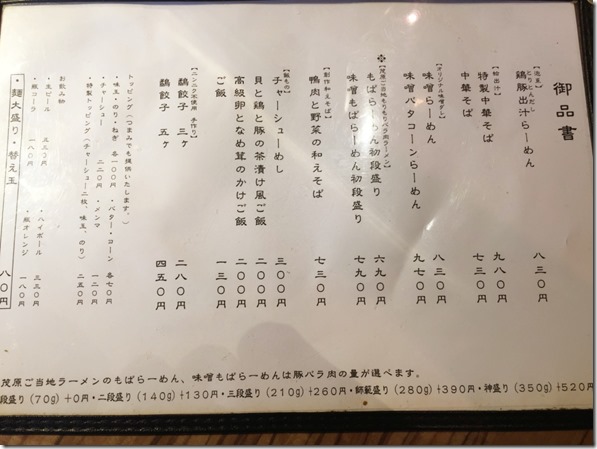 御品書
【泡系】
とりとんだし
鶏豚出汁らーめん 八三〇円
【鯵出汁】
特製中華そば 九八〇円
中華そば 七三〇円
【オリジナル味噌ダレ】
味噌らーめん 八三〇円
味噌バタコーンらーめん 九七〇円
【茂原ご当地もりもりバラ肉ラーメン】
もばらーめん初段盛り 六九〇円
味噌もばらーめん初段盛り 七九〇円
【創作和えそば】
鴨肉と野菜の和えそば 七三〇円
【飯もの】
チャーシューめし 三〇〇円
貝と鶏と豚の茶漬け風ご飯 二〇〇円
高級卵となめ茸のかけご飯 二〇〇円
ご飯 一三〇円
【ニンニク不使用 手作り】
鶏餃子 三ヶ 二八〇円
鶏餃子 五ヶ 四五〇円
トッピング(つまみでも提供いたします。)
・味玉・のり・ねぎ 各一〇〇円 ・バター・コーン 各七〇円
・チャーシュー 二二〇円 ・メンマ 一二〇円
・特製トッピング(チャーシュー二枚、味玉、のり) 二五〇円
お飲み物
・生ビール 五三〇円 ・ハイボール 三三〇円
・瓶コーラ 一八〇円 ・瓶オレンジ 一八〇円
・麺大盛り・替え玉 八〇円
茂原ご当地ラーメンのもばらーめん、味噌もばらーめんは豚バラ肉の量が選べます。
段盛り(70g)+0円・二段盛り(140g)+130円・三段盛り(210g)+260円・師範盛り(280g)+390円・神盛り(350g)+520円